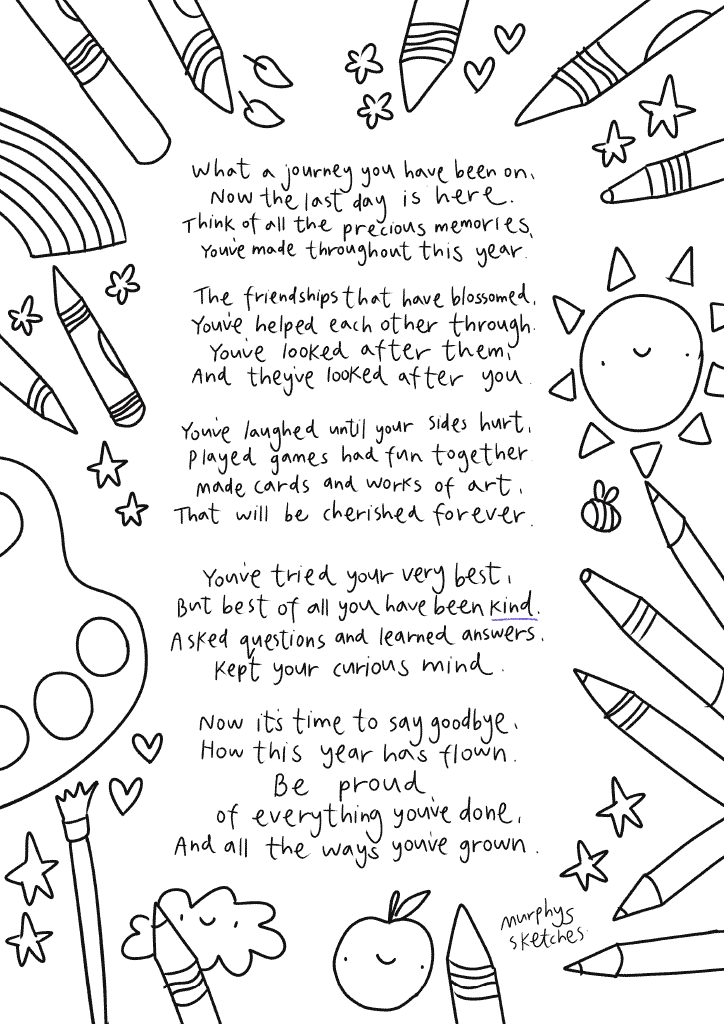 What a journey you have been on,
Now the last day is here.
Think of all the precious memories,
You've made throughout this year.
The friendships that have blossomed,
You've helped each other through.
You've looked after them,
And they've looked after you.
You've laughed until your sides hurt,
Played games had fun together
made cards and works of art,
That will be cherished forever.
You've tried your very best,
But best of all you have been kind.
Asked questions and learned answers.
Kept your curious mind.
Now it's time to say goodbye,
How this year has flown.
Be proud
of everything you've done,
And all the ways you've grown.
murphys
sketches